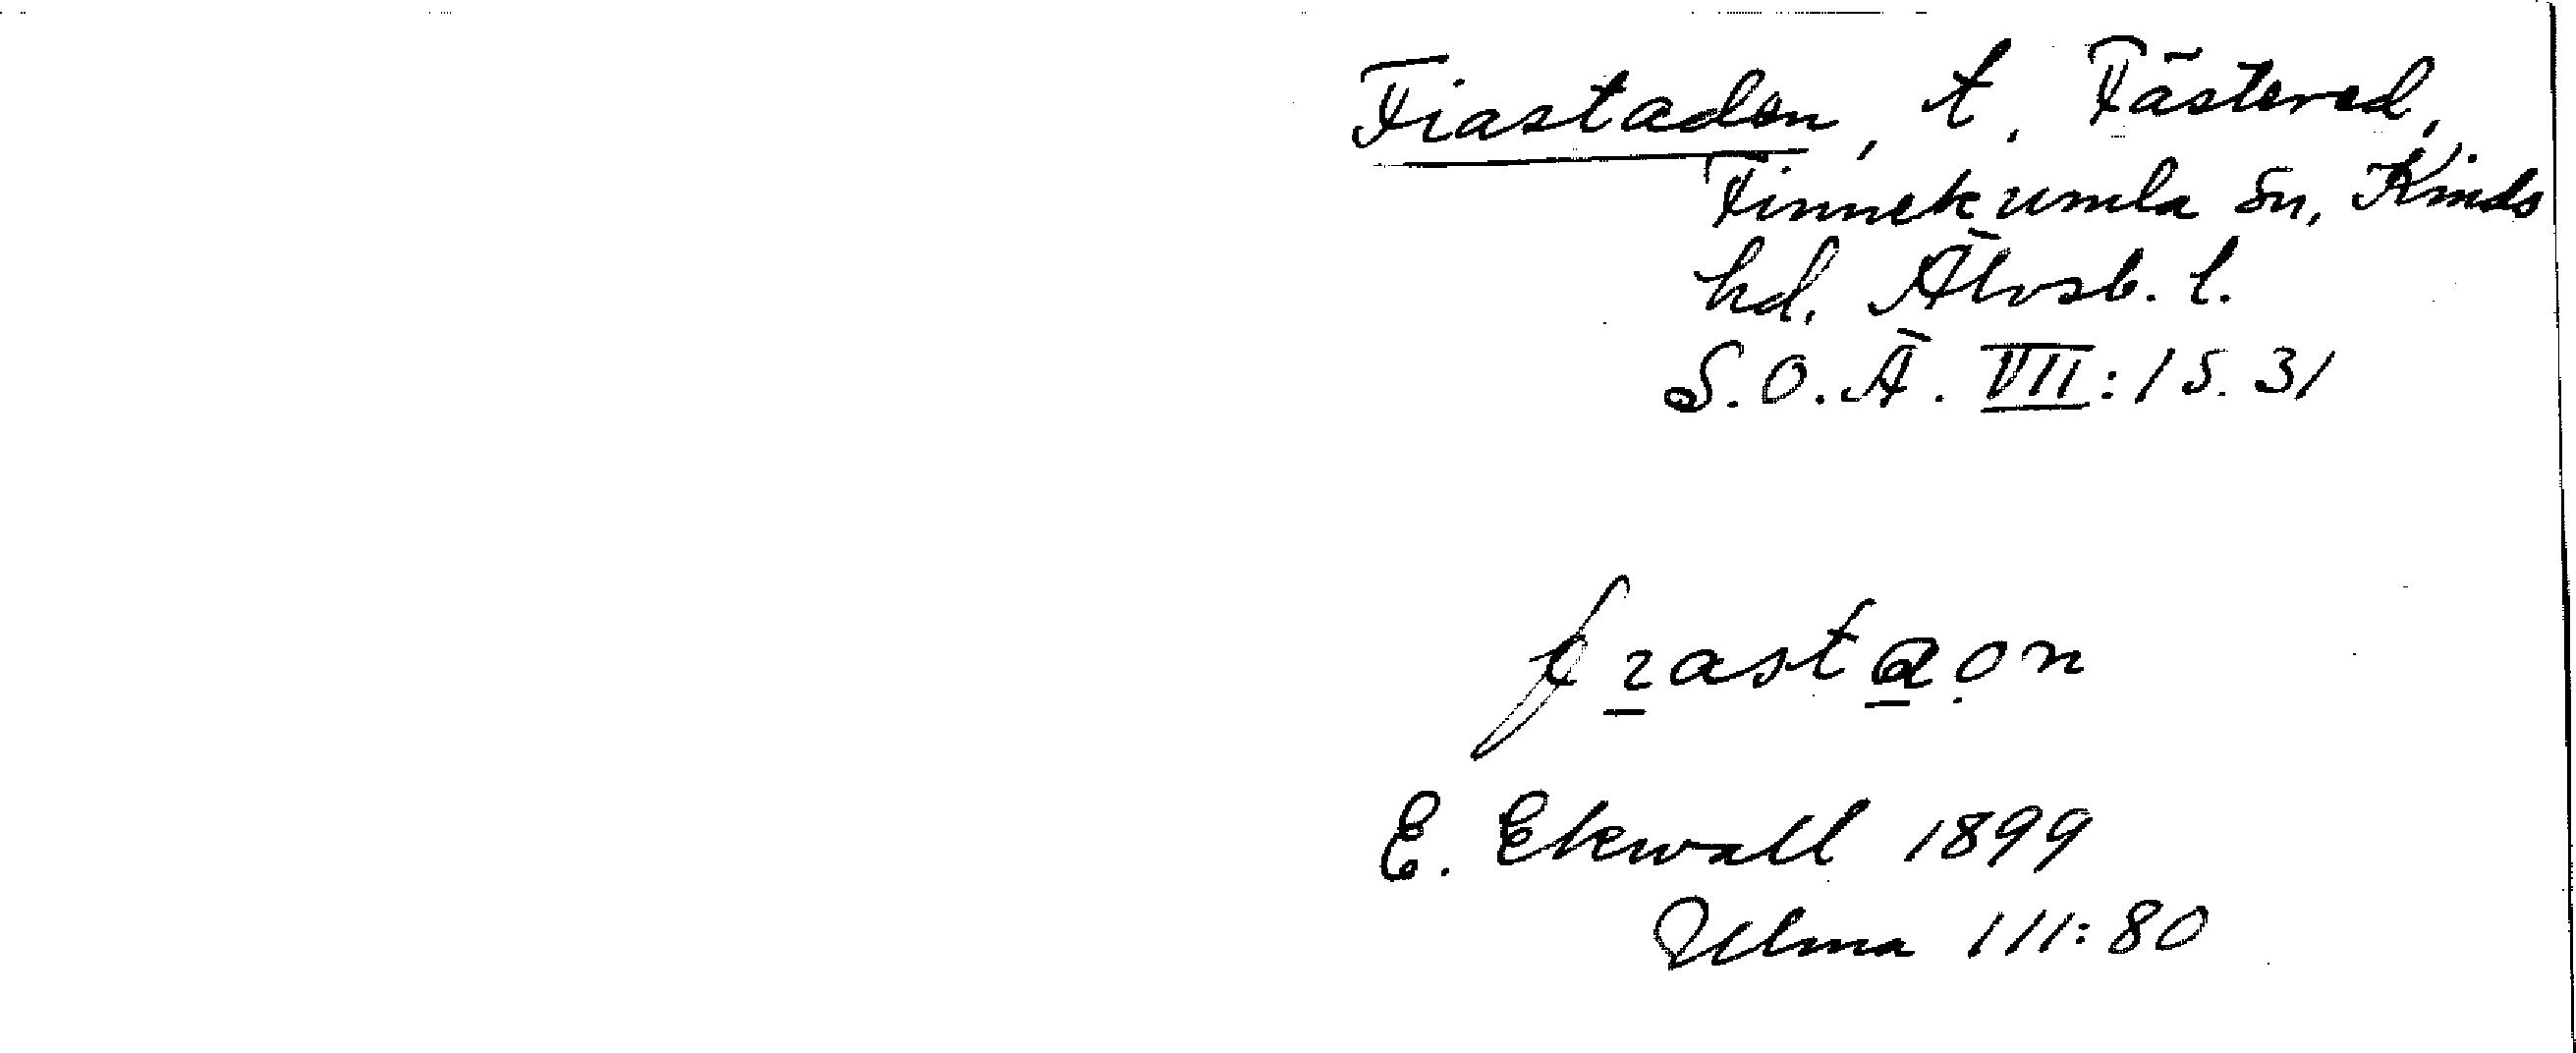 Fiastaden, t. Fästered,
Finnekumla sn, Kinds
hd. Älvsb. l.
S.O.Ä. VII: 1 s. 31
fɩastaon
E. Ekwall 1899
Ulma 111:80